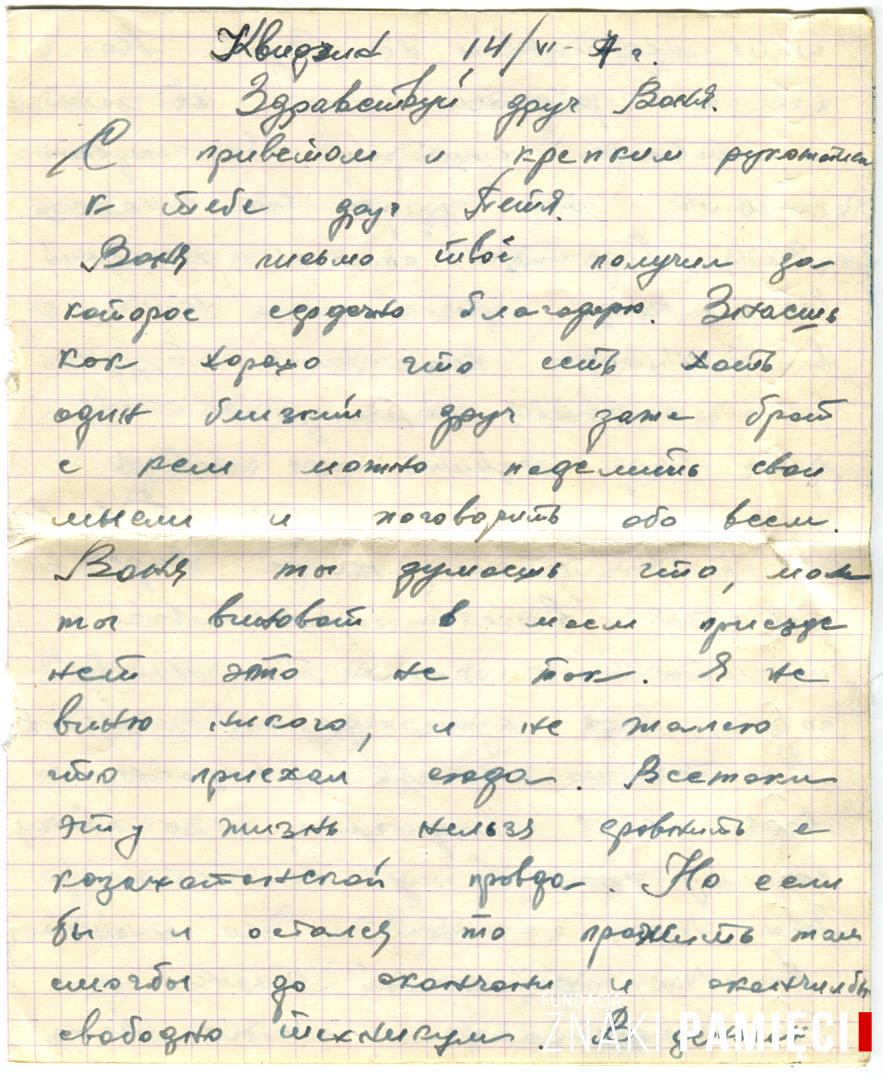 Квидзин 14/VI-
Здравствуй друг Ваня.
С приветом и крепким рукожатием
к тебе друг Петя.
Ваня письмо твоё получил за
которое сердечно благодарю. Знаешь
как хорахо что есть хоть
один близкий друг заже брат
с кем можно поделить свои
мысли и поговорить обо всем.
Ваня ты думаешь что, мол
ты виноват в моем приезде
нет это не так. Я не
виню никого, и не жалею
что приехал сюда. Всетаки
эту жизнь нельзя сровнить с
казахстанской правда. Но если
бы и остался то прожить там
смогбы до и окончилбы
свободно техникум. В
FUNDACJA
ZNAKI PAMIĘCI